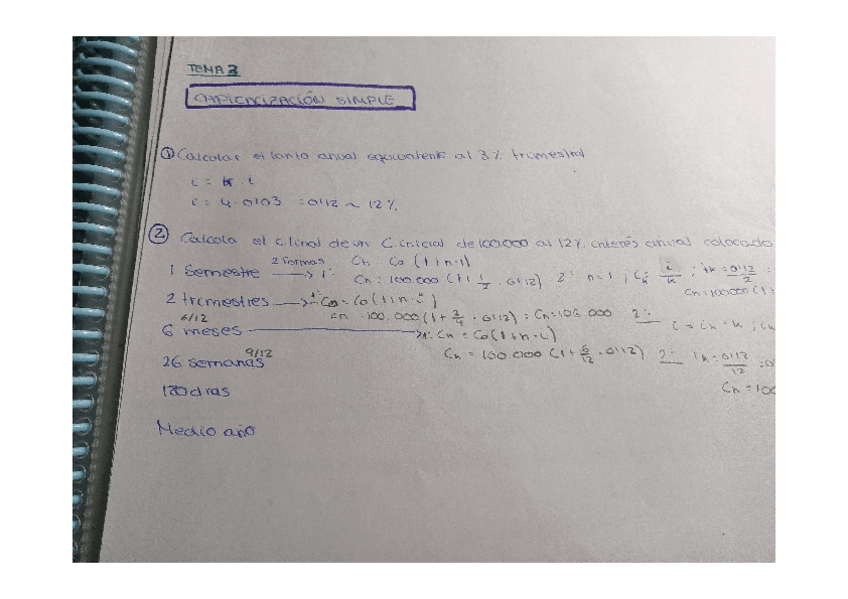 TEMA 3
CAPITALIZACIÓN SIMPLE
① Calcular el tanto anual equivalente al 3% trimestral
i = k · i
i = 4 · 0'03 = 0'12 ~ 12%
② Calcula el c.final de un C.inicial de 100.000 al 12% interés anual colocado
2 formas Cn = Co (1+n·i)
1 semestre → 1ª: Cn = 100.000 (1 + 1/2 · 0'12) 2ª: n = 1 ; ik = i/k ; ik = 0'12/2 =
Cn = 100000 (1+
2 trimestres → 1ª Cn = Co (1+n·i)
Cn = 100.000 (1 + 2/4 · 0'12) = Cn = 106 000 2ª: i = ik · k ; ik
6/12
6 meses → 1ª: Cn = Co (1+n·i)
Cn = 100 000 (1 + 6/12 · 0'12) 2ª: ik = 0'12/12 = 0
9/12
26 semanas
Cn = 100
180 días
Medio año